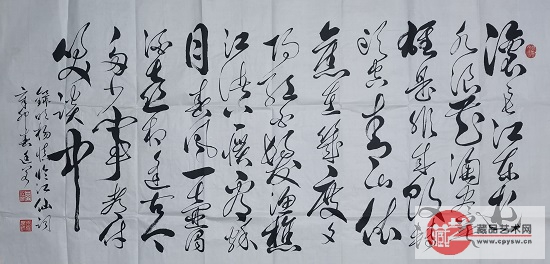 滚滚长江东逝
水浪花淘尽英
雄是非成败转
头空青山依
旧在几度夕
阳红白发渔樵
江渚上惯看秋
月春风一壶浊
酒喜相逢古今
多少事都付
笑谈中
录明杨慎临江仙词
辛卯
藏品艺术网
www.cpysw.cn